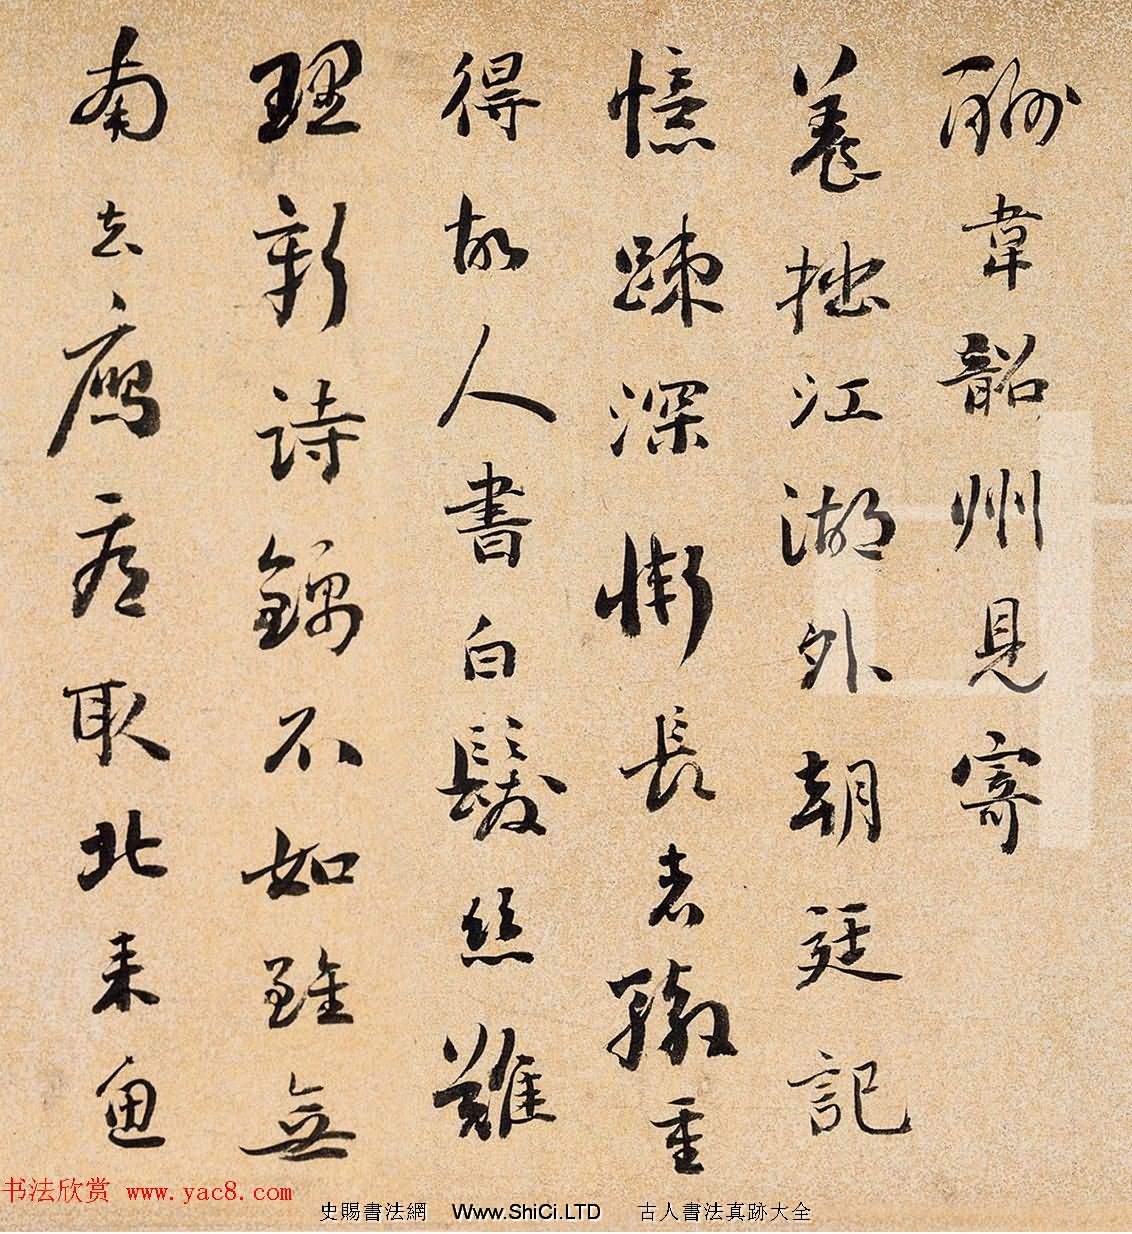 酬韋韶州見寄
養拙江湖外朝廷記
憶踈深慚長者轍重
得故人書白髮絲難
理新詩錦不如雖無
南去鴈看取北來魚
书法欣赏 www.yac8.com
史賜書法網 Www.ShiCi.LTD 古人書法真跡大全